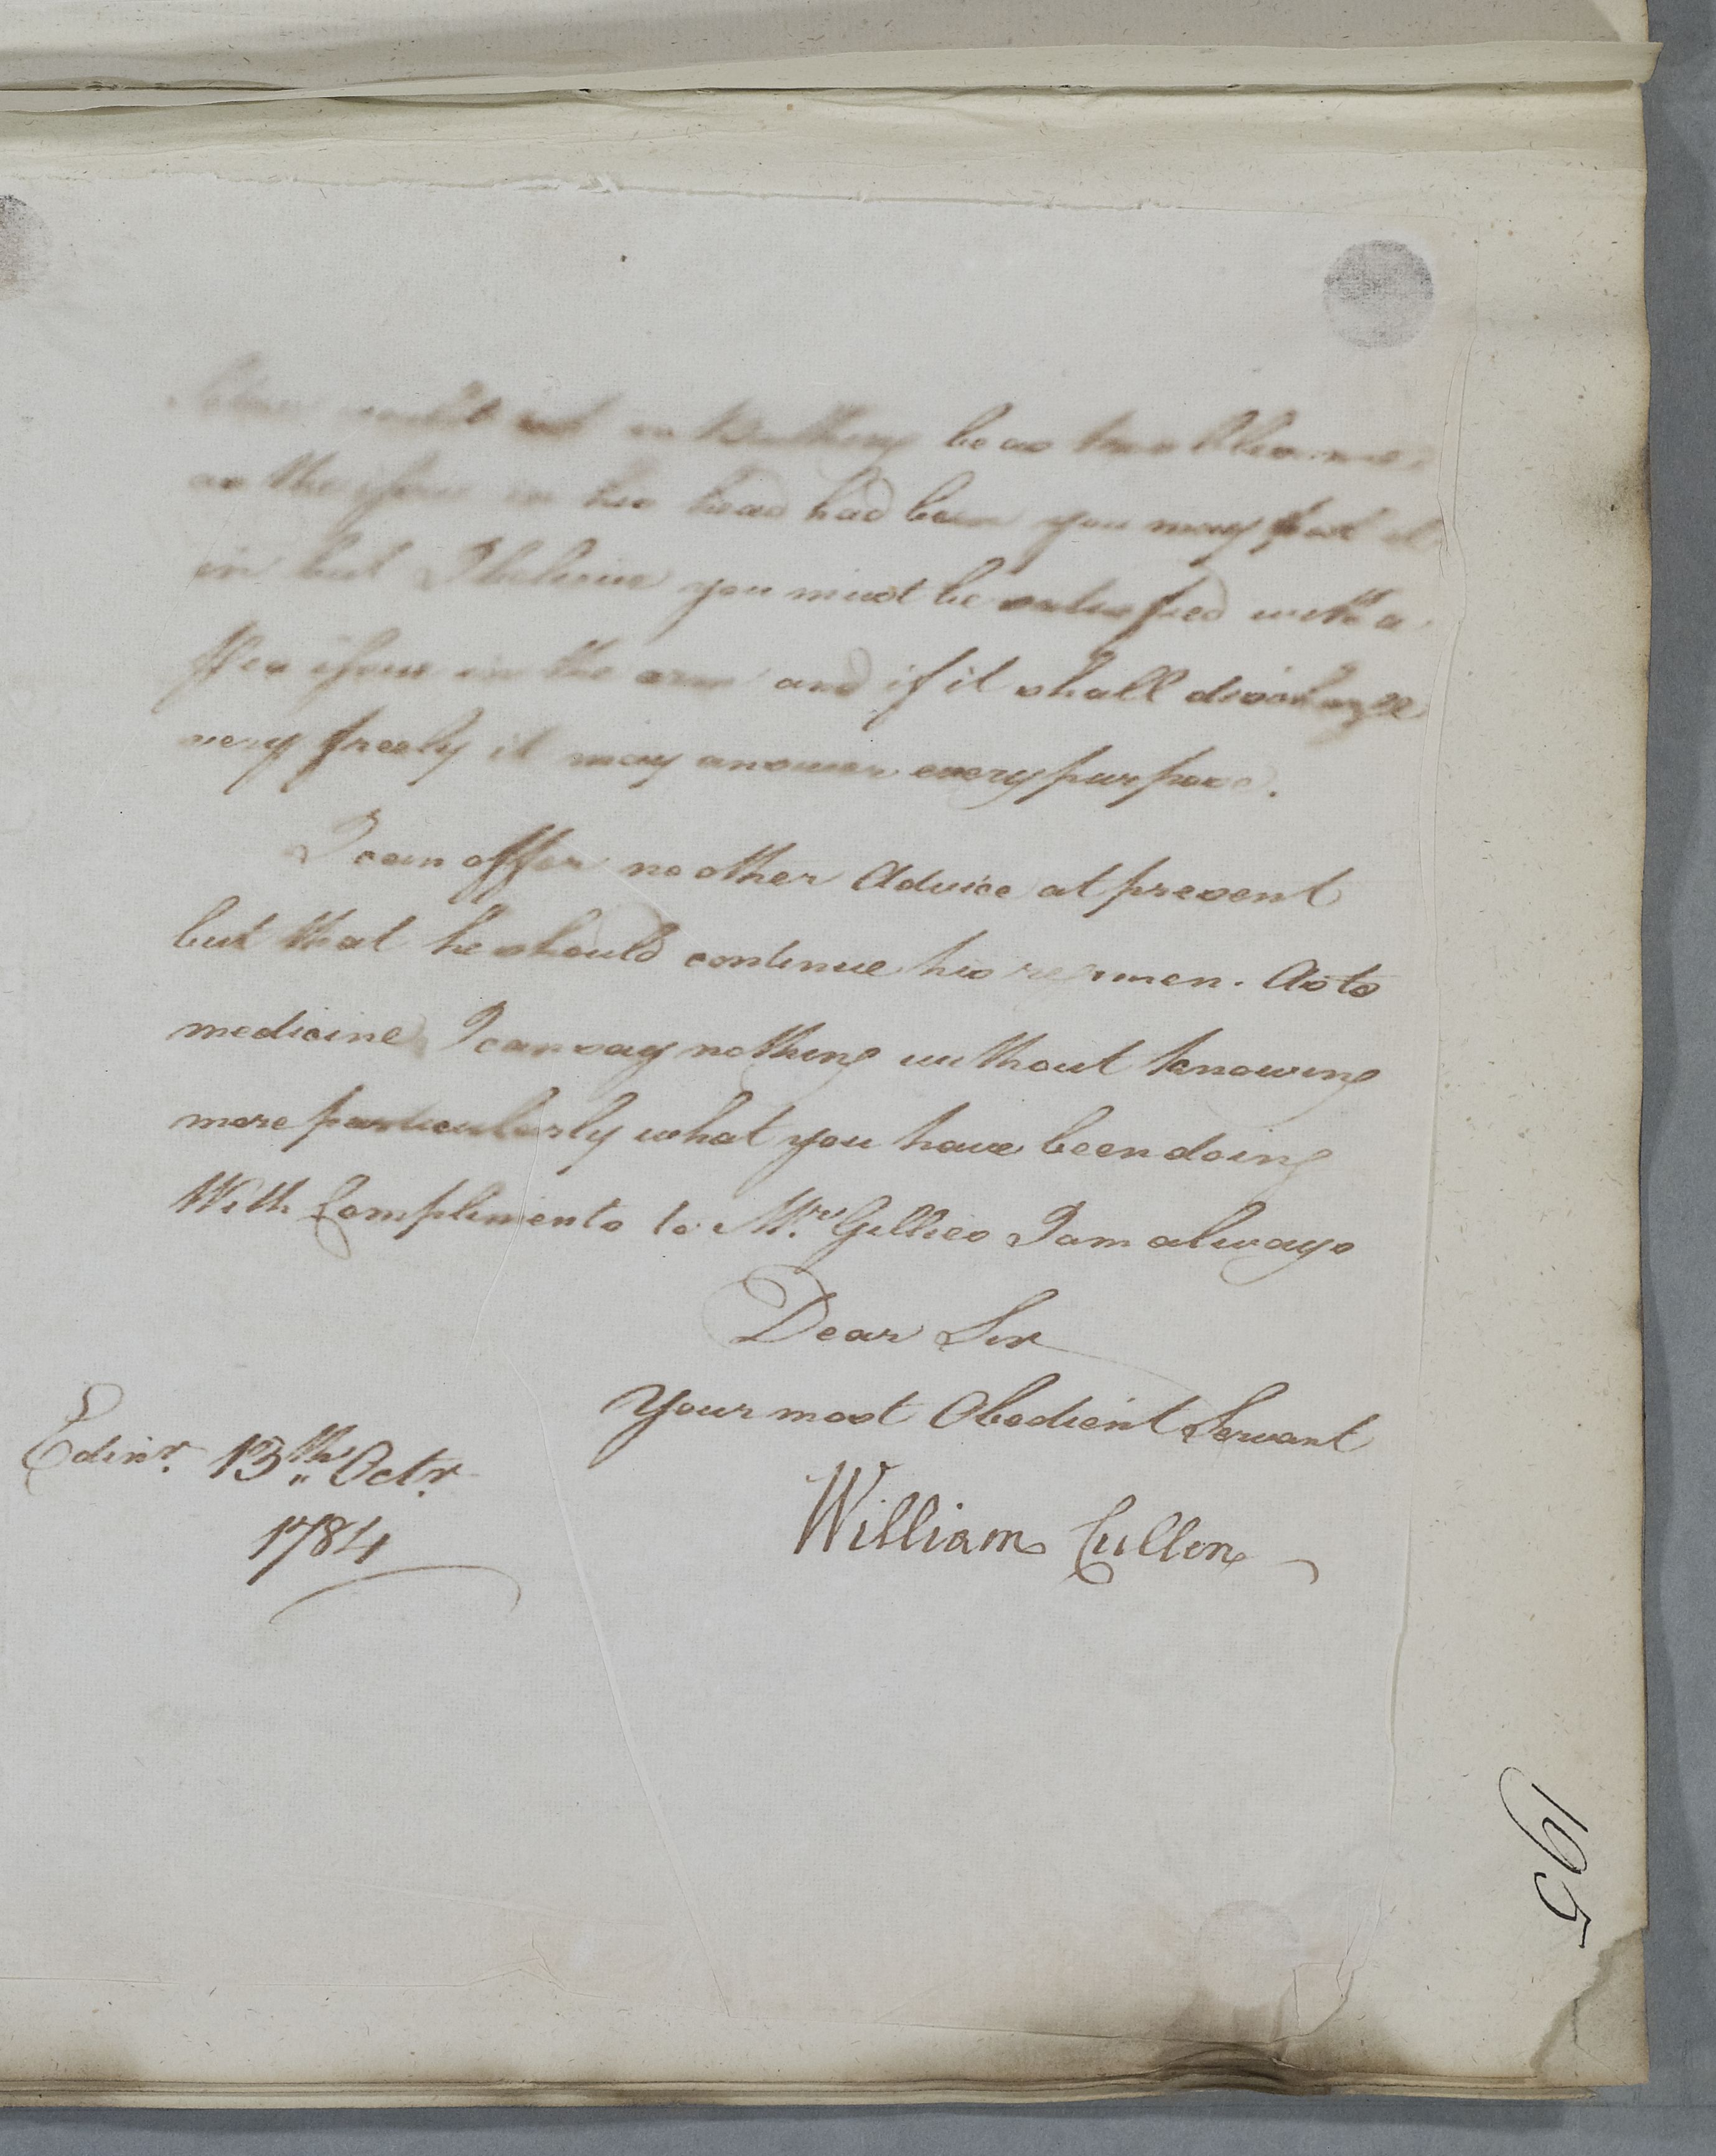 would not in Bulk be as troublesome
as the issue in his head had been you may put it
in but I believe you must be satisfied with a
Pea issue in the arm and if it shall discharge
very freely it may answer every purpose.
I can offer no other Advice at present
but that he should continue his regimen. As to
medicine I can say nothing without knowing
more particularly what you have been doing
With Compliments to Mrs. Gillies I am always
Dear Sir
Your most Obedient Servant
William Cullen
Edinr. 13th Octr.
1784
195